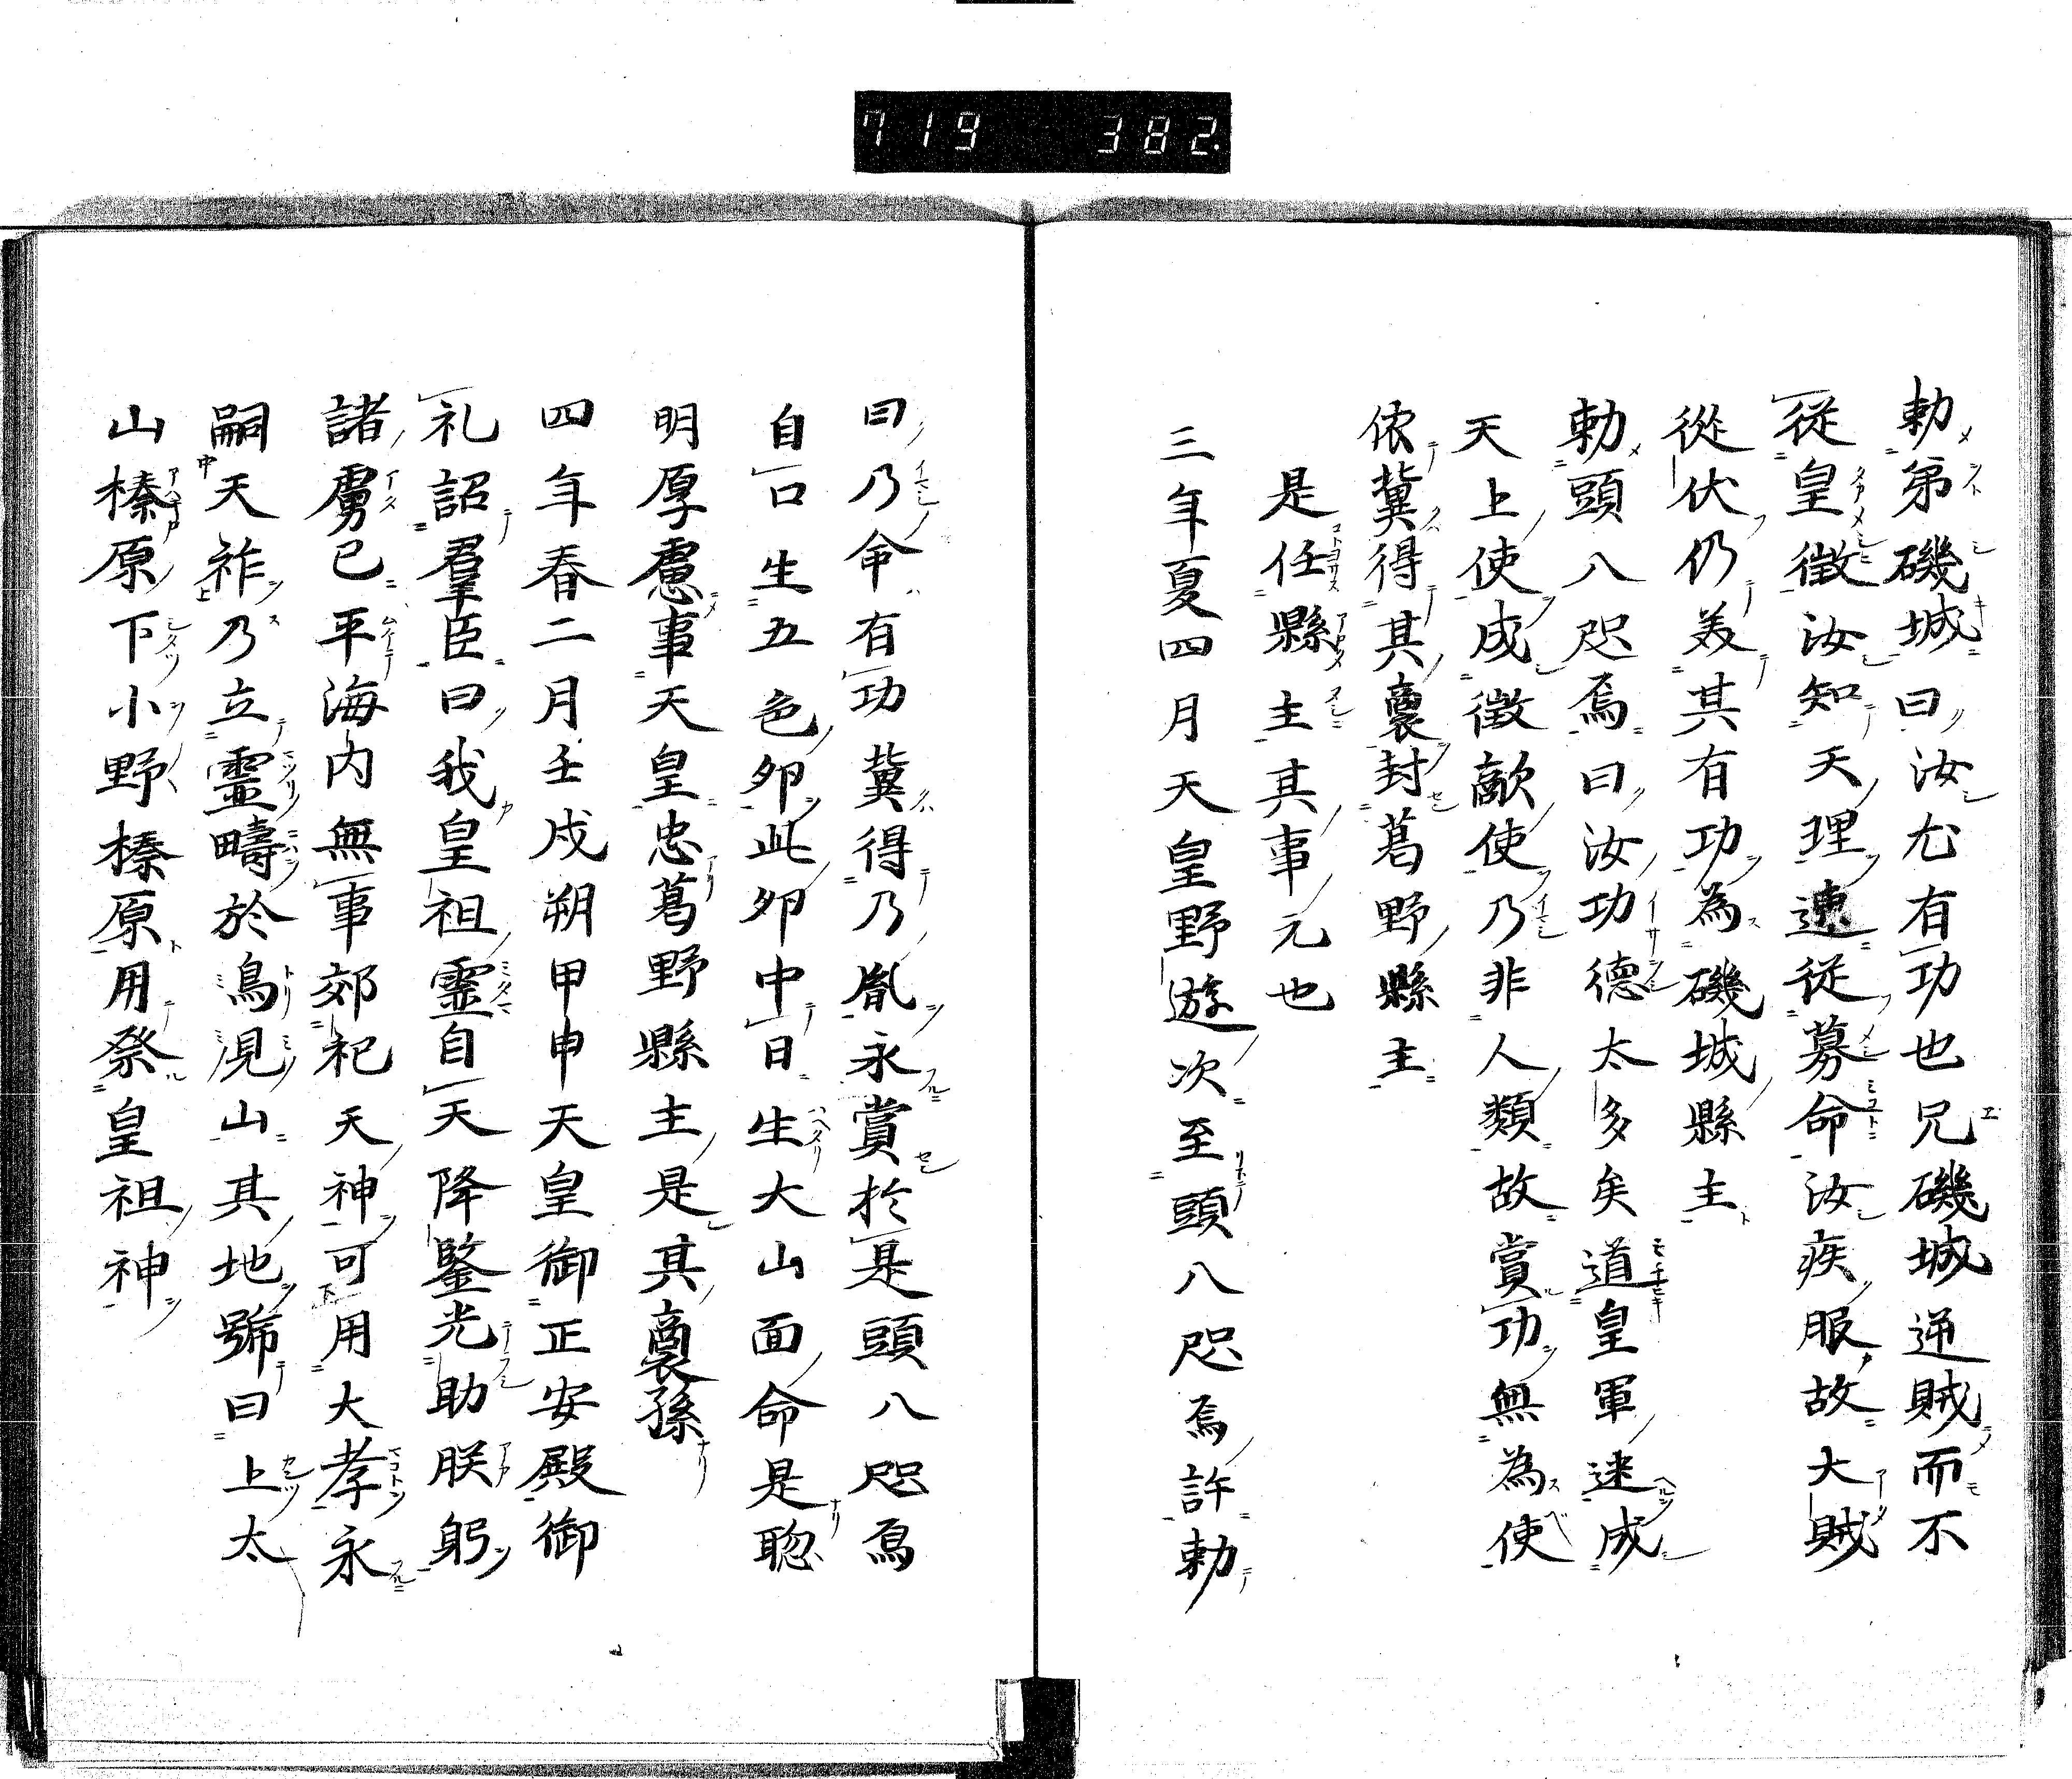 719 382.
勅弟磯城曰汝尤有功也兄磯城逆賊而不
従皇徴汝知天理速従募命汝疾服故大賊
從伏仍美其有功為磯城縣主
勅頭八咫烏曰汝功德太多矣道皇軍速成
天上使成徴敵使乃非人類故賞功無為使
依冀得其裏封葛野縣主
是任縣主其事元也
三年夏四月天皇野遊次至頭八咫烏許勅
曰乃命有功冀得乃胤永賞於是頭八咫烏
自口生五色卵此卵中日生大山面命是聡
明厚慮事天皇忠葛野縣主是其裔孫
四年春二月壬戌朔甲申天皇御正安殿御
礼詔羣臣曰我皇祖霊自天降鑒光助朕躬
諸虜已平海内無事郊祀天神可用大孝永
嗣天祚乃立霊疇於鳥見山其地號曰上太
山榛原下小野榛原用祭皇祖神